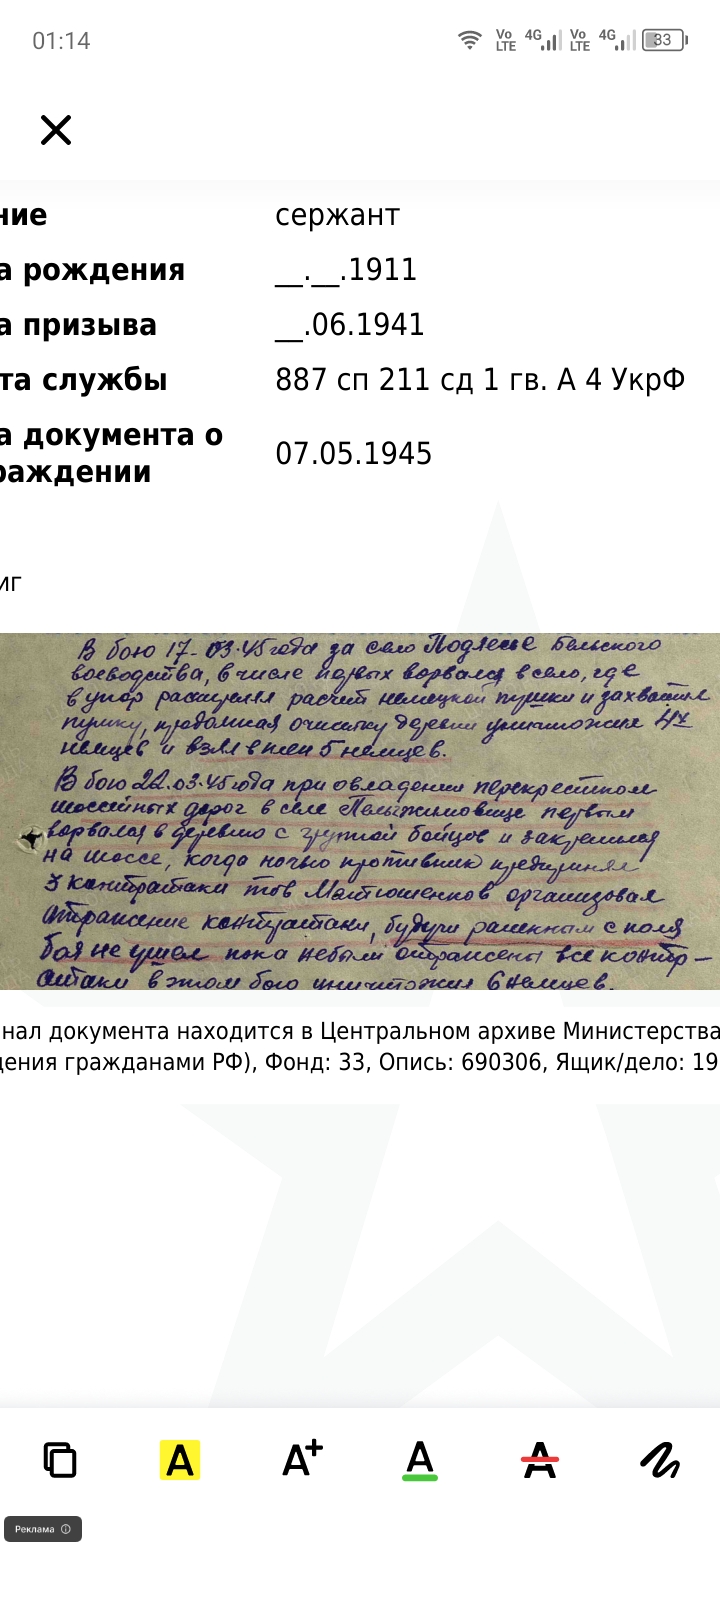 01:14
Vo LTE 4G Vo LTE 4G 33
ние
сержант
а рождения
__.__.1911
а призыва
__.06.1941
та службы
887 сп 211 сд 1 гв. А 4 УкрФ
а документа о
раждении
07.05.1945
иг
В бою 17-03.45 года за село Подлесье Бельского
воеводства, в числе первых ворвался в село, где
в упор расстрелял расчет немецкой пушки и захватил
пушку, продолжая очистку деревни уничтожил 4х
немцев и взял в плен 5 немцев.
В бою 22.03.45 года при овладении перекрестком
шоссейных дорог в селе первым
ворвался в деревню с группой бойцов и закрепился
на шоссе, когда ночью противник предпринял
3 контратаки тов Матюшенков организовал
отражение контратаки, будучи раненным с поля
боя не ушел пока небыли отражены все контр-
атаки в этом бою уничтожил 6 немцев.
нал документа находится в Центральном архиве Министерства
дения гражданами РФ), Фонд: 33, Опись: 690306, Ящик/дело: 19
A A+ A A
Реклама